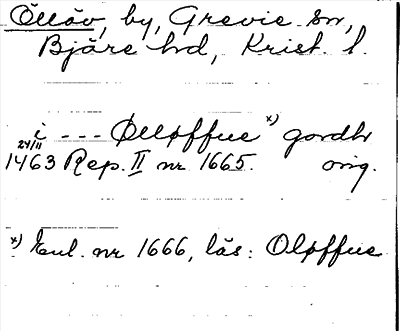 Ölöv, by, Grevie sn,
Bjäre hd, Krist. l.
i --- Ølløffue x) gordh
24/11
1463 Rep. II nr 1665. orig.
x) Enl. nr 1666, läs: Oløffue